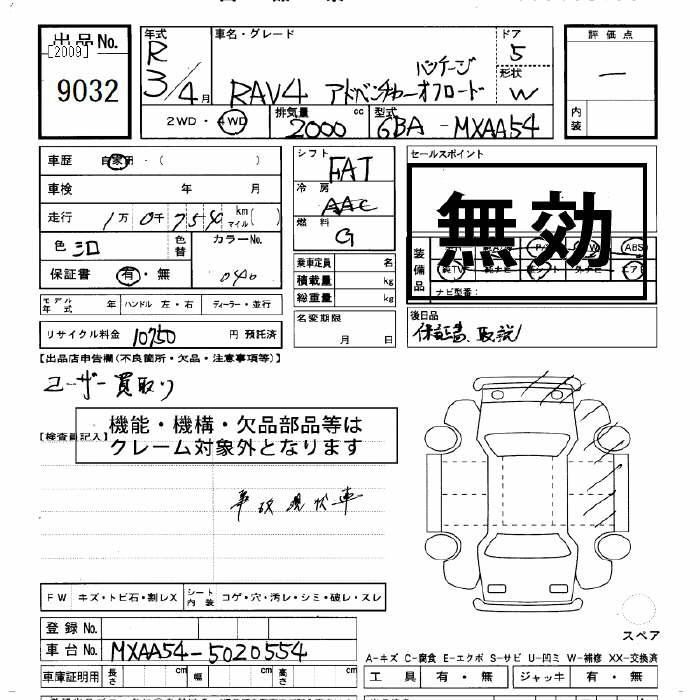 出品No.
[2009]
9032
年式
R
3/4月
車名・グレード
RAV4 アドベンチャーオフロード
パッケージ
ドア
5
形状
W
評価点
—
内装
2WD・4WD
排気量
2000 cc
型式
6BA-MXAA54
車歴 自家用・( )
車検 年 月
走行 1万0千754 km マイル( )
色 シロ
色替
カラーNo.
040
保証書 有・無
モデル年式 年
ハンドル 左・右
ディーラー・並行
リサイクル料金 10750 円 預託済
シフト
FAT
冷房
AAC
燃料
G
乗車定員 名
積載量 kg
総重量 kg
名変期限
月 日
セールスポイント
無効
装備品
ABS
ナビ型番:
後日品
保証書、取説
【出品店申告欄(不良箇所・欠品・注意事項等)】
ユーザー買取り
【検査員記入】
機能・機構・欠品部品等は
クレーム対象外となります
事故現状車
FW キズ・トビ石・割レX
シート内装
コゲ・穴・汚レ・シミ・破レ・スレ
登録No.
車台No. MXAA54-5020554
車庫証明用 長さ cm 幅 cm 高さ cm
スペア
A-キズ C-腐食 E-エクボ S-サビ U-凹ミ W-補修 XX-交換済
工具 有・無 ジャッキ 有・無